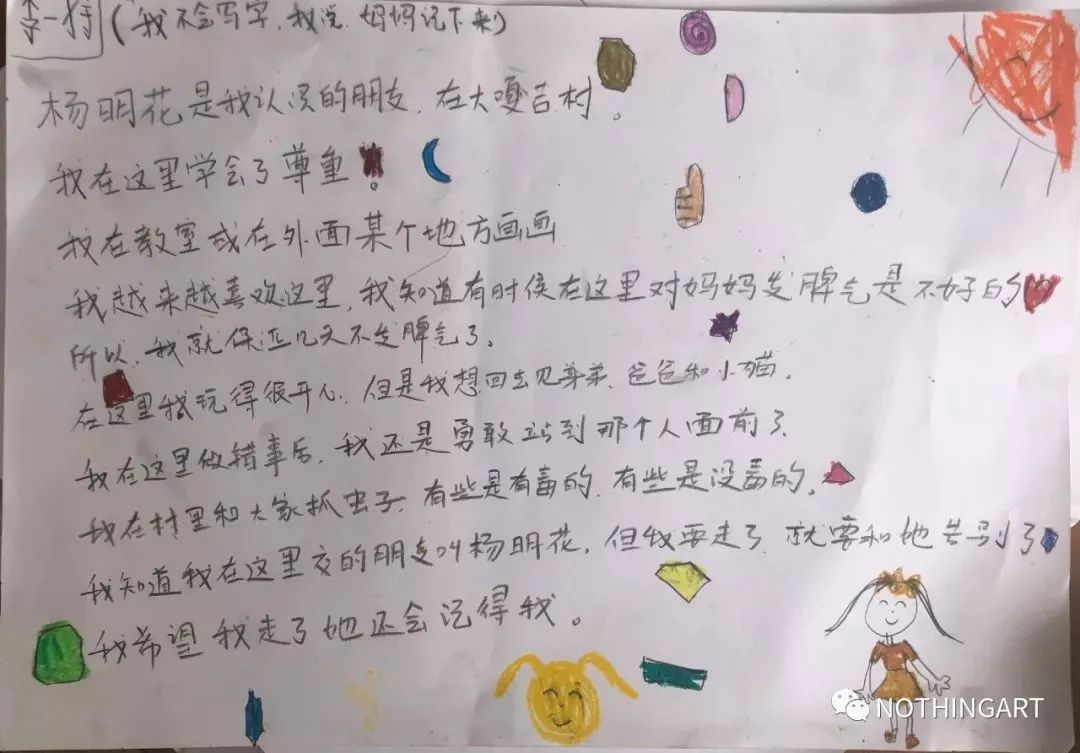 李一狩
(我不会写字,我说,妈妈记下来)
杨明花是我认识的朋友.在大嘎吉村。
我在这里学会了尊重。
我在教室或在外面某个地方画画
我越来越喜欢这里,我知道有时候在这里对妈妈发脾气是不好的
所以,我就保证几天不发脾气了。
在这里我玩得很开心.但是我想回去见弟弟.爸爸和小猫.
我在这里做错事后.我还是勇敢站到那个人面前了.
我在村里和大家抓虫子.有些是有毒的.有些是没毒的.
我知道我在这里交的朋友叫杨明花.但我要走了.就要和她告别了
我希望我走了她还会记得我。
NOTHINGART